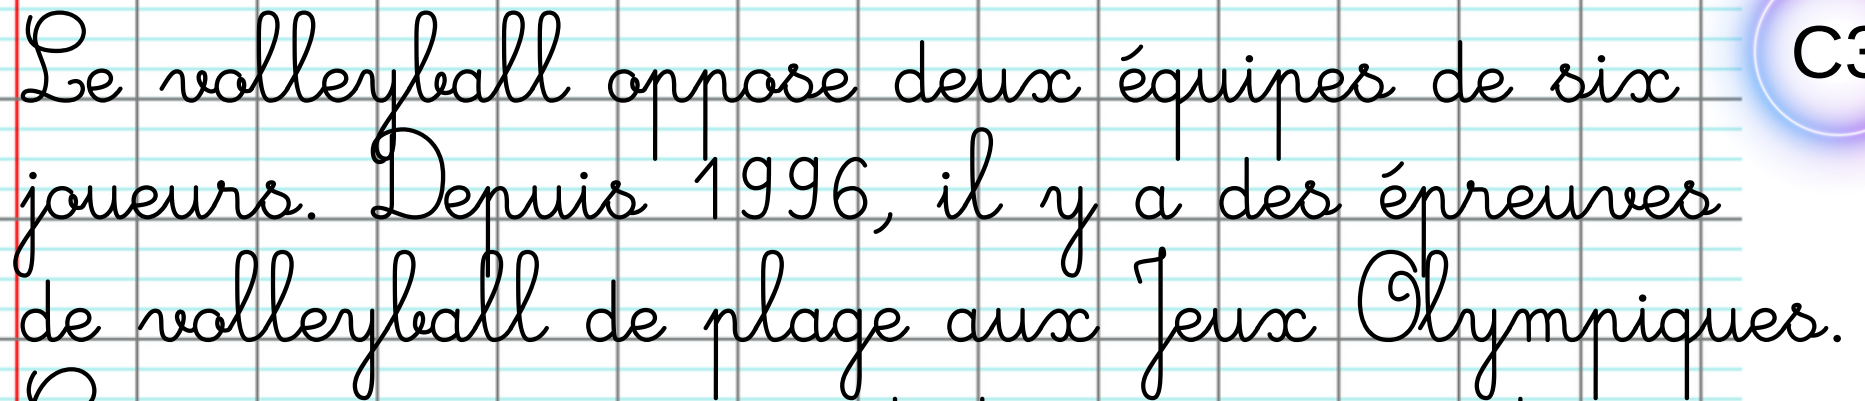 Le volleyball oppose deux équipes de six
C3
joueurs. Depuis 1996, il y a des épreuves
de volleyball de plage aux Jeux Olympiques.